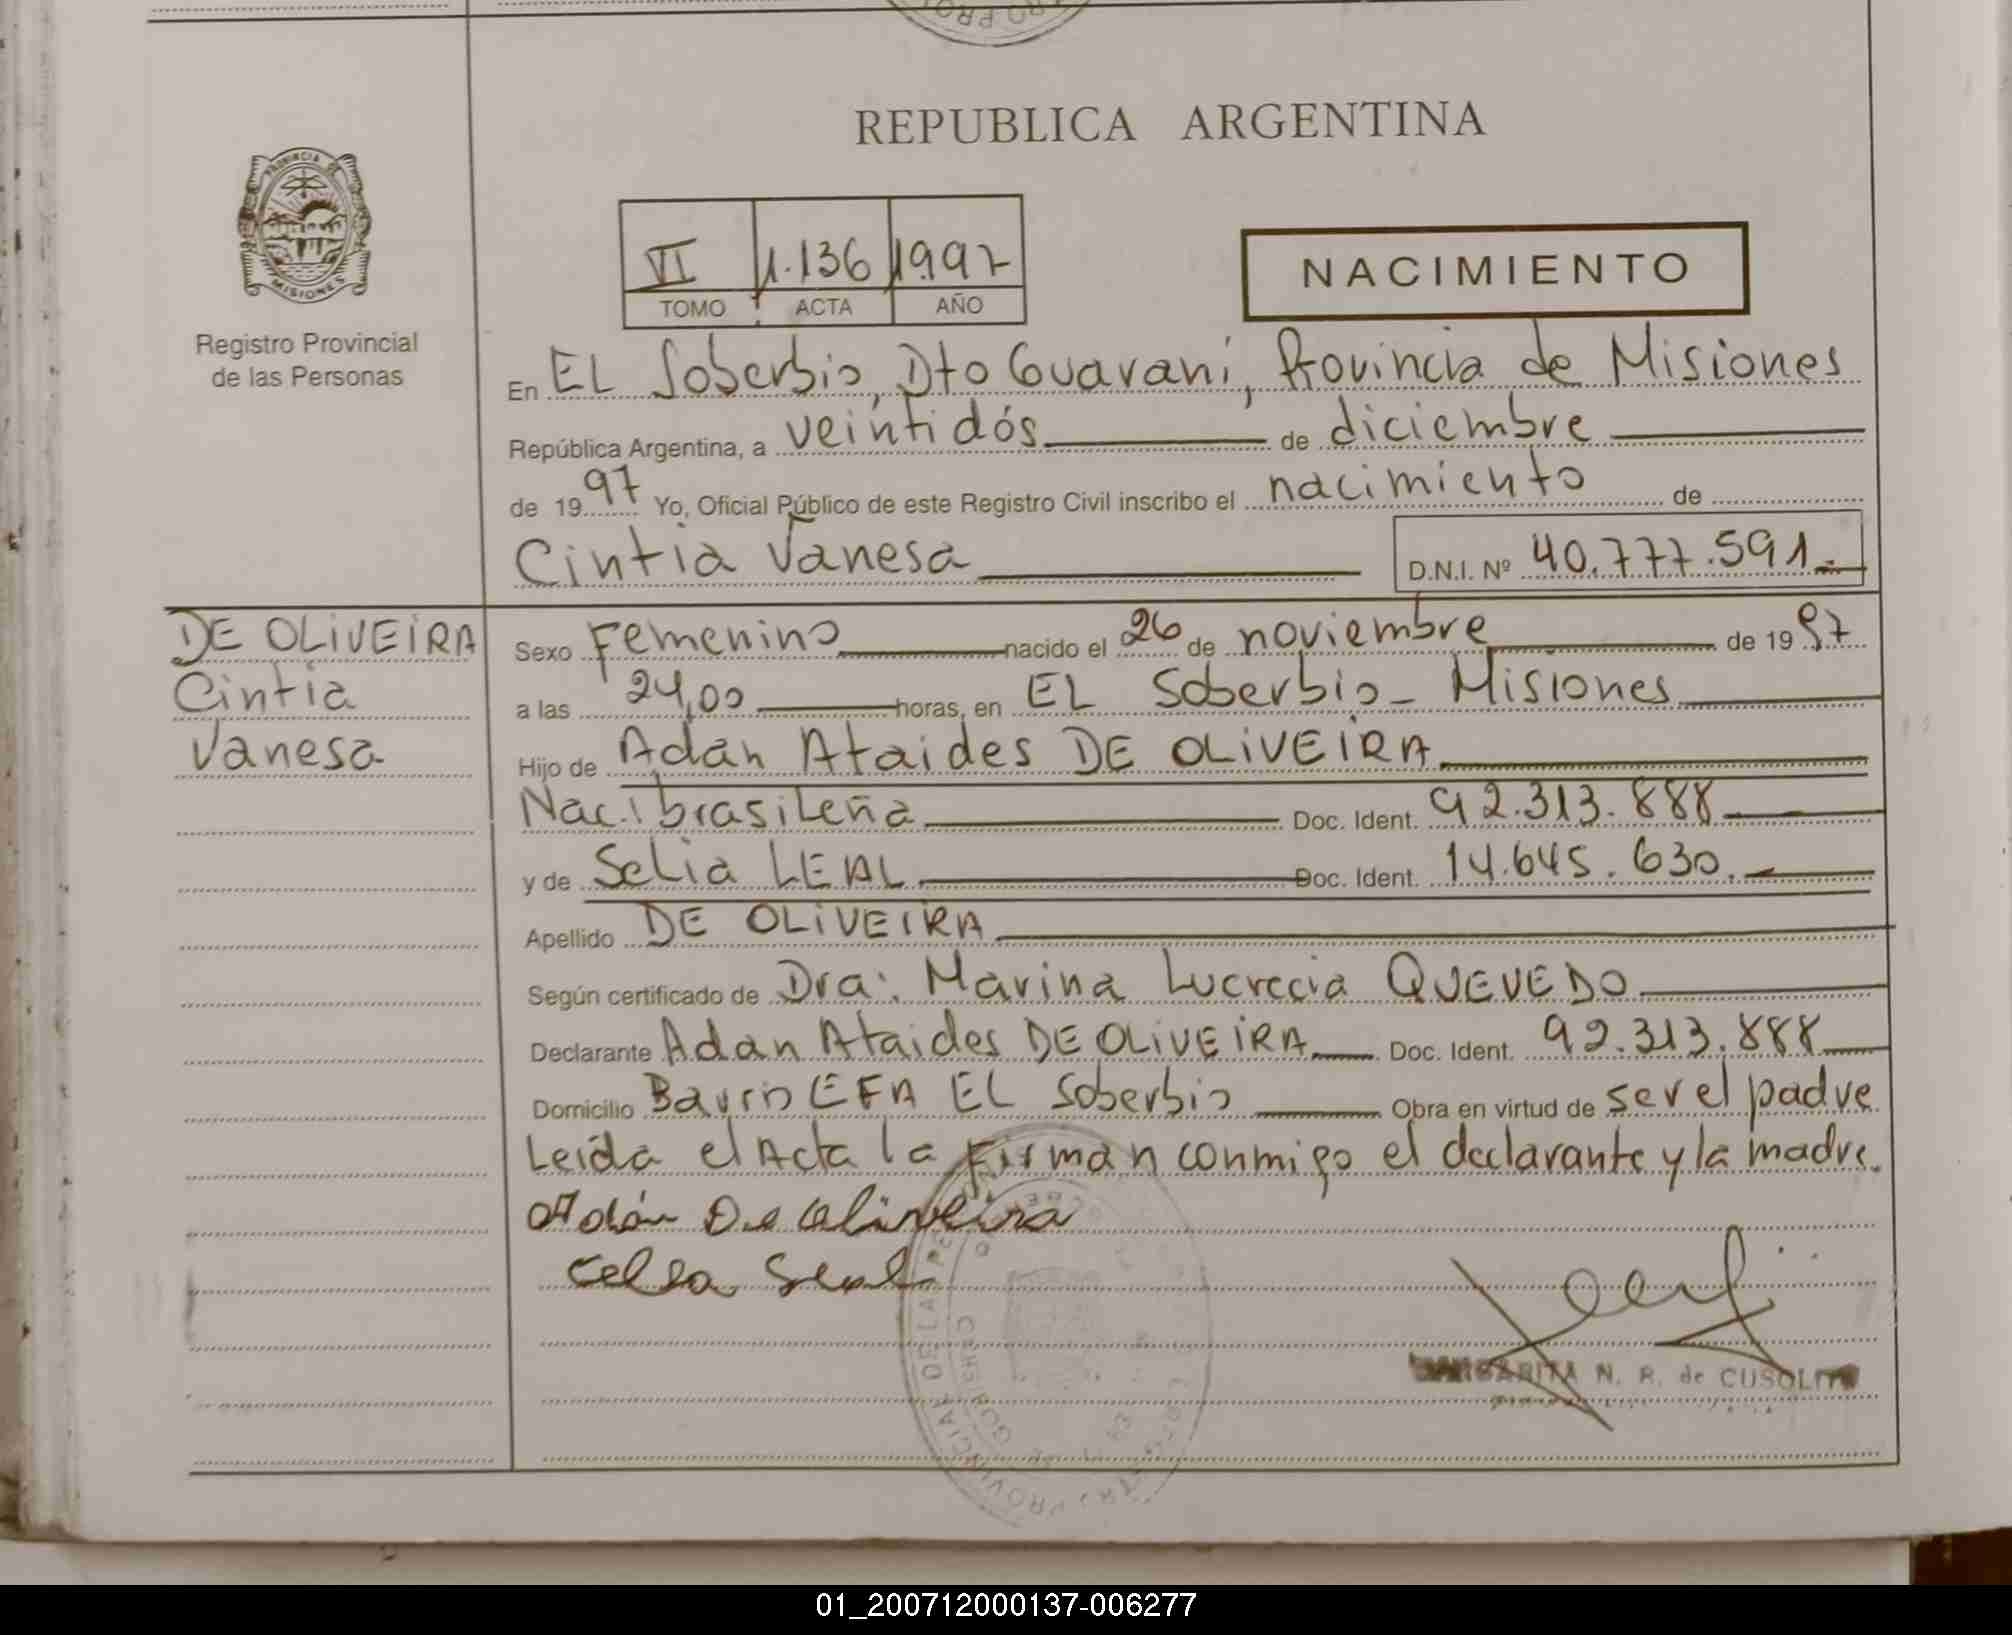 REPUBLICA ARGENTINA
PROVINCIA DE
MISIONES
Registro Provincial
de las Personas
VI 1.136 1997
TOMO ACTA AÑO
NACIMIENTO
En EL Soberbio, Dto Guaraní, Provincia de Misiones
República Argentina, a veintidós de diciembre
de 1997 Yo, Oficial Público de este Registro Civil inscribo el nacimiento de
Cintia Vanesa D.N.I. Nº 40.777.591.-
DE OLIVEIRA
Cintia
Vanesa
Sexo Femenino nacido el 26 de noviembre de 1997
a las 24,00 horas, en EL Soberbio - Misiones
Hijo de Adán Ataides DE OLIVEIRA
Nac. brasileña Doc. Ident. 92.313.888
y de Selia LEAL Doc. Ident. 14.645.630.
Apellido DE OLIVEIRA
Según certificado de Dra. Marina Lucrecia QUEVEDO
Declarante Adan Ataides DE OLIVEIRA Doc. Ident. 92.313.888
Domicilio Barrio EFA EL Soberbio Obra en virtud de ser el padre
Leída el Acta la Firman conmigo el declarante y la madre.
Adán De Oliveira
Celia Leal
MARGARITA N. R. de CUSOLITO
01_200712000137-006277